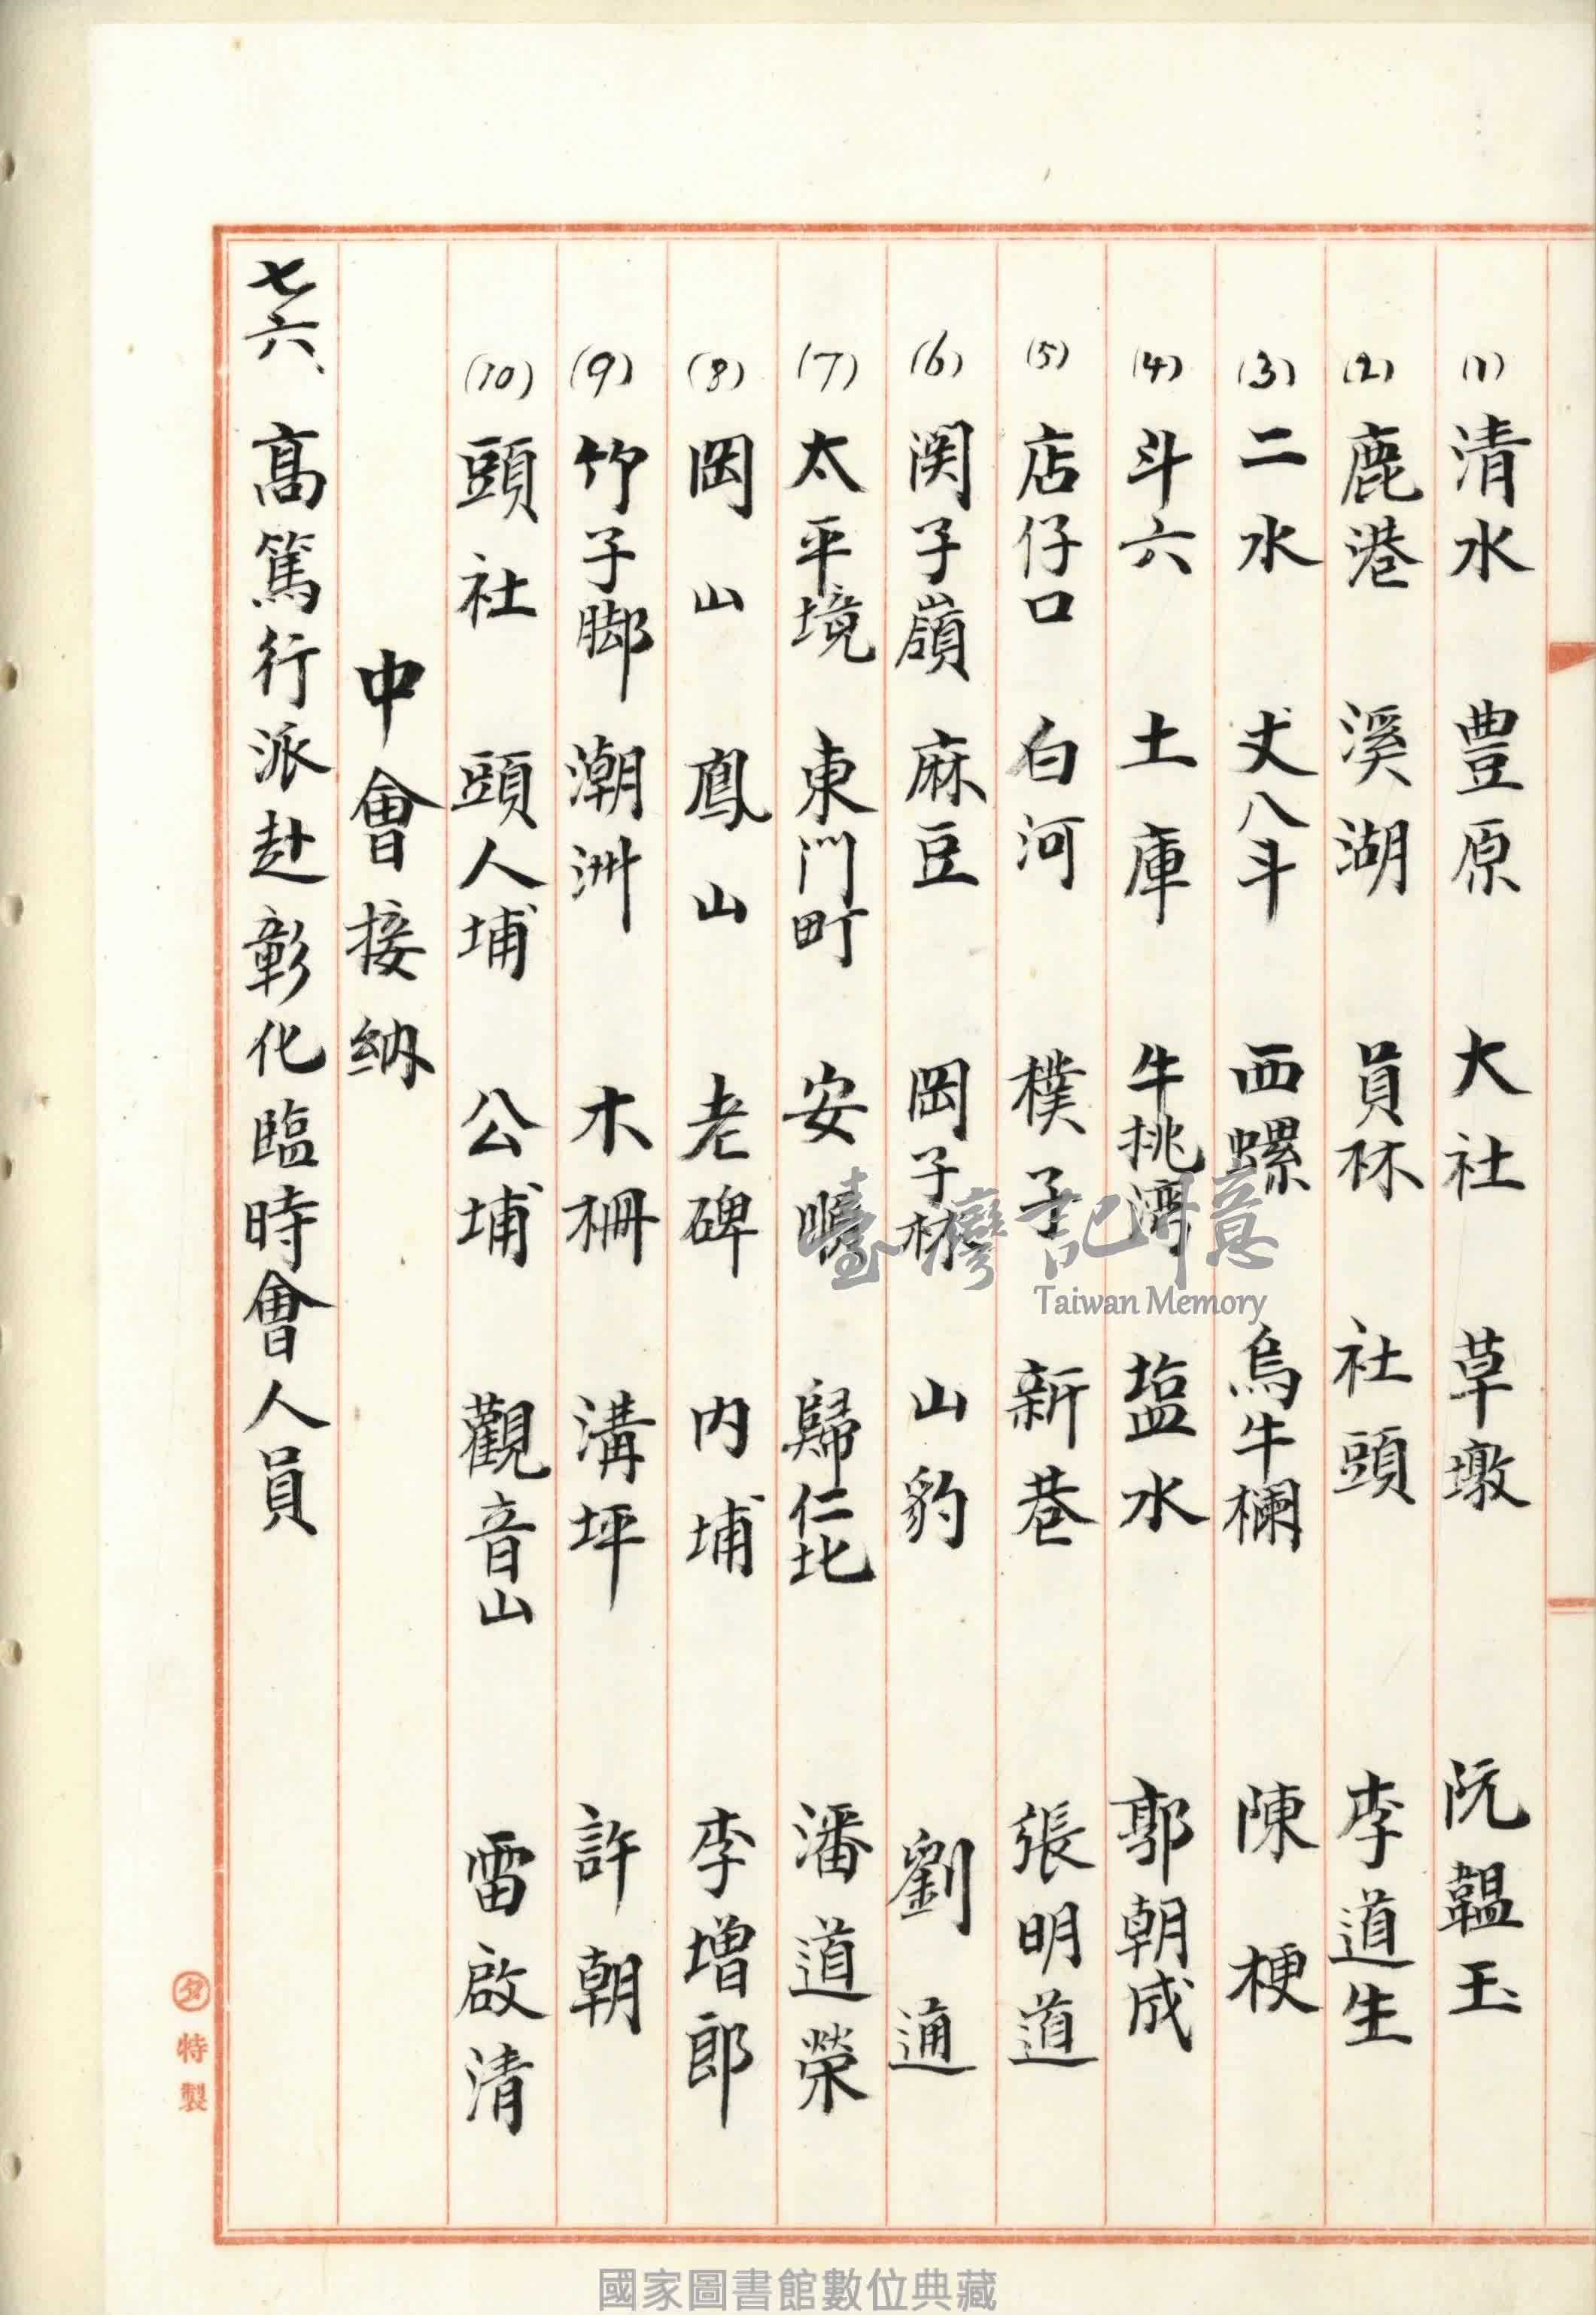 (1) 清水 豊原 大社 草墩 阮韞玉
(2) 鹿港 溪湖 員林 社頭 李道生
(3) 二水 丈八斗 西螺 烏牛欄 陳梗
(4) 斗六 土庫 牛挑湾 塩水 郭朝成
(5) 店仔口 白河 樸子 新巷 張明道
(6) 関子嶺 麻豆 岡子林 山豹 劉通
(7) 太平境 東門町 安順 歸仁北 潘道榮
(8) 岡山 鳳山 老碑 内埔 李増郎
(9) 竹子脚 潮洲 木柵 溝坪 許朝
(10) 頭社 頭人埔 公埔 觀音山 雷啟清
中會接納
七六、高篤行派赴彰化臨時會人員
タ特製
臺灣記憶
Taiwan Memory
國家圖書館數位典藏